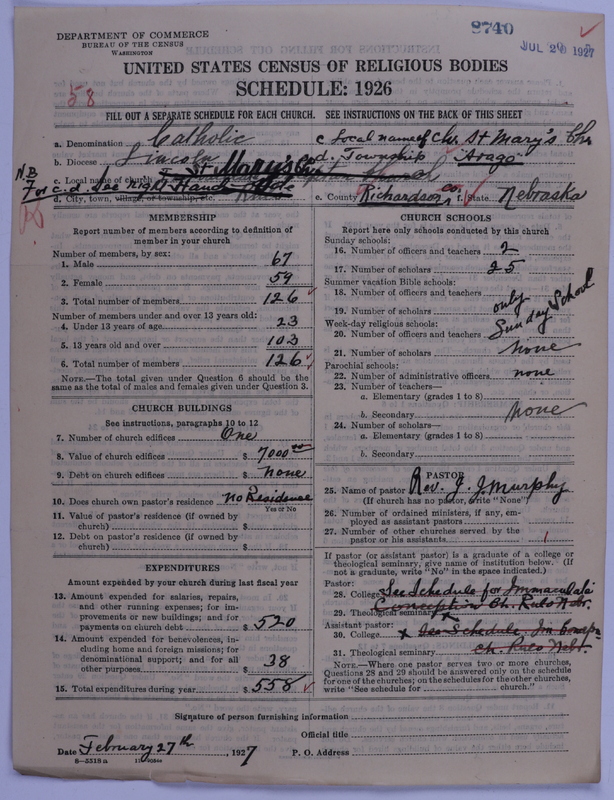 8740
JUL 20 1927
DEPARTMENT OF COMMERCE
BUREAU OF THE CENSUS
WASHINGTON
UNITED STATES CENSUS OF RELIGIOUS BODIES
SCHEDULE: 1926
58
FILL OUT A SEPARATE SCHEDULE FOR EACH CHURCH. SEE INSTRUCTIONS ON THE BACK OF THIS SHEET
a. Denomination Catholic c Local name of Chr. St Mary's Chr
b. Diocese Lincoln d. Township Arago
c. Local name of church St Mary's Church
N.B. For c. d. See right Hand Side
d. City, town, village, or township, etc. Rural e. County Richardson Co. f. State Nebraska
MEMBERSHIP
Report number of members according to definition of member in your church
Number of members, by sex:
1. Male 67
2. Female 59
3. Total number of members 126
Number of members under and over 13 years old:
4. Under 13 years of age 23
5. 13 years old and over 103
6. Total number of members 126
NOTE.—The total given under Question 6 should be the same as the total of males and females given under Question 3.
CHURCH BUILDINGS
See instructions, paragraphs 10 to 12
7. Number of church edifices One
8. Value of church edifices $ 7000 00
9. Debt on church edifices $ none
10. Does church own pastor's residence no Residence
Yes or No
11. Value of pastor's residence (if owned by church) $
12. Debt on pastor's residence (if owned by church) $
EXPENDITURES
Amount expended by your church during last fiscal year
13. Amount expended for salaries, repairs, and other running expenses; for improvements or new buildings; and for payments on church debt $ 520
14. Amount expended for benevolences, including home and foreign missions; for denominational support; and for all other purposes $ 38
15. Total expenditures during year $ 558
CHURCH SCHOOLS
Report here only schools conducted by this church
Sunday schools:
16. Number of officers and teachers 2
17. Number of scholars 25
Summer vacation Bible schools:
18. Number of officers and teachers
19. Number of scholars only Sunday School
Week-day religious schools:
20. Number of officers and teachers
21. Number of scholars none
Parochial schools:
22. Number of administrative officers none
23. Number of teachers—
a. Elementary (grades 1 to 8)
b. Secondary none
24. Number of scholars—
a. Elementary (grades 1 to 8)
b. Secondary
PASTOR
25. Name of pastor Rev. J. J. Murphy
(If church has no pastor, write "None")
26. Number of ordained ministers, if any, employed as assistant pastors
27. Number of other churches served by the pastor or his assistants 1
If pastor (or assistant pastor) is a graduate of a college or theological seminary, give name of institution below. (If not a graduate, write "No" in the space indicated.)
Pastor:
28. College See Schedule for Immaculate
29. Theological seminary Conception Ch. Rulo Nebr.
Assistant pastor:
30. College x See Schedule Im Concep
31. Theological seminary ch. Rulo Nebr.
NOTE.—Where one pastor serves two or more churches, Questions 28 and 29 should be answered only on the schedule for one of the churches; on the schedules for the other churches, write "See schedule for church."
Signature of person furnishing information
Official title
Date February 27th, 1927 P. O. Address
8—5318 a